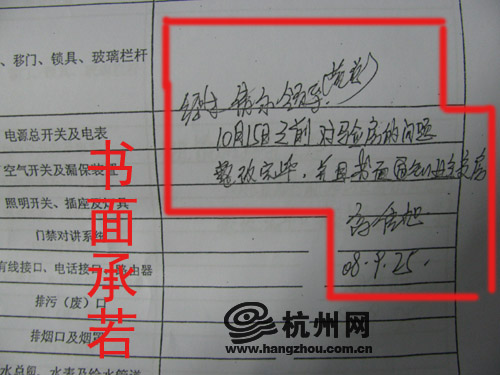 、移门、锁具、玻璃栏杆
电源总开关及电表
空气开关及漏保装置
照明开关、插座及灯具
门禁对讲系统
有线接口、电话接口、路由器
排污（废）口
排烟口及烟
水总阀、水表及给水管道
10月15日之前 对验房的问题
整改完毕，并且书面通知业主交房
08.9.25.
书面承若
杭州网
www.hangzhou.com.cn